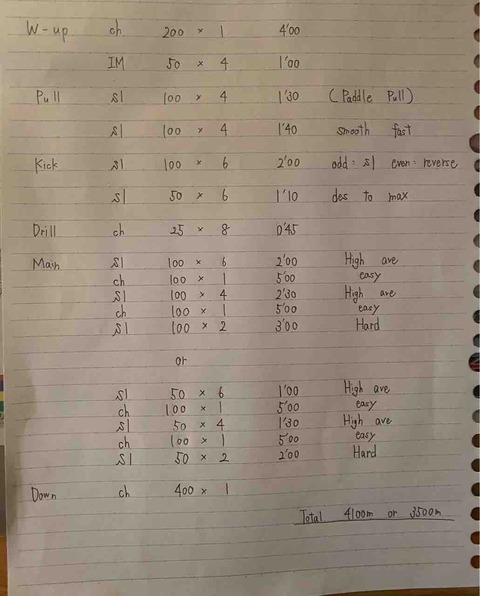 W-up ch 200 × 1 4'00
IM 50 × 4 1'00
Pull S1 100 × 4 1'30 (Paddle Pull)
S1 100 × 4 1'40 smooth fast
Kick S1 100 × 6 2'00 odd: S1 even: reverse
S1 50 × 6 1'10 des to max
Drill ch 25 × 8 0'45
Main S1 100 × 6 2'00 High ave
ch 100 × 1 5'00 easy
S1 100 × 4 2'30 High ave
ch 100 × 1 5'00 easy
S1 100 × 2 3'00 Hard
or
S1 50 × 6 1'00 High ave
ch 100 × 1 5'00 easy
S1 50 × 4 1'30 High ave
ch 100 × 1 5'00 easy
S1 50 × 2 2'00 Hard
Down ch 400 × 1
Total 4100m or 3500m